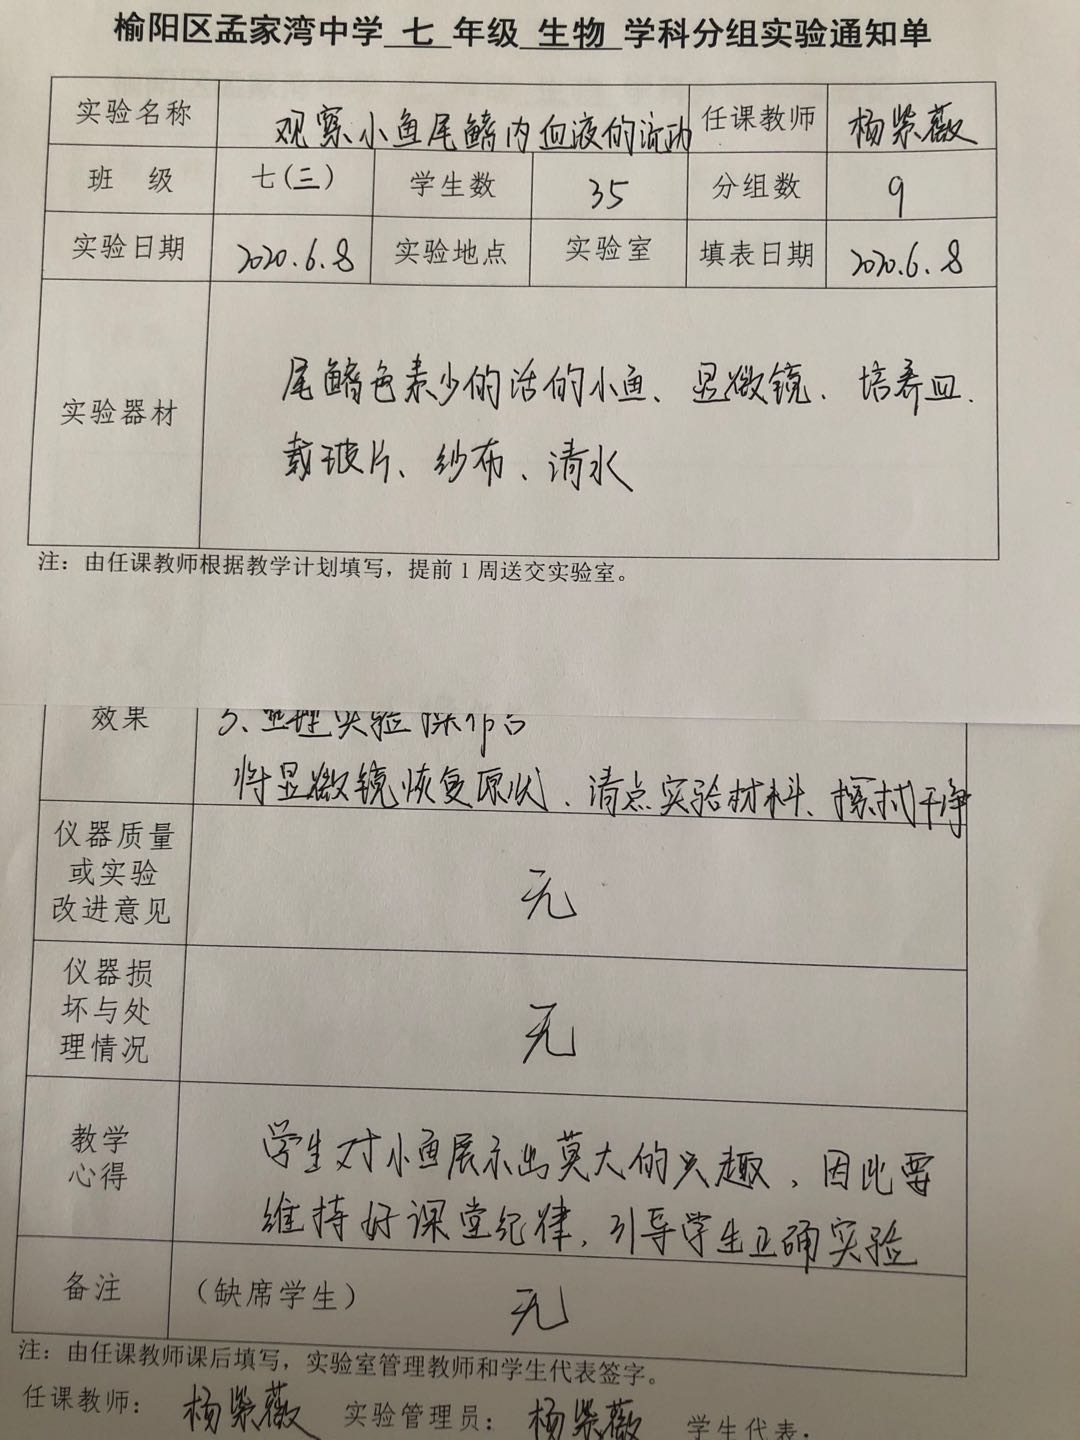 榆阳区孟家湾中学 七 年级 生物 学科分组实验通知单
实验名称 观察小鱼尾鳍内血液的流动 任课教师 杨紫薇
班 级 七(三) 学生数 35 分组数 9
实验日期 2020.6.8 实验地点 实验室 填表日期 2020.6.8
实验器材
尾鳍色素少的活的小鱼、显微镜、培养皿、
载玻片、纱布、清水
注：由任课教师根据教学计划填写，提前 1 周送交实验室。
效果 3、整理实验操作台
将显微镜恢复原状、清点实验材料、擦拭干净
仪器质量
或实验
改进意见
无
仪器损
坏与处
理情况
无
教学
心得
学生对小鱼展示出莫大的兴趣，因此要
维持好课堂纪律，引导学生正确实验
备注 （缺席学生） 无
注：由任课教师课后填写，实验室管理教师和学生代表签字。
任课教师： 杨紫薇 实验管理员： 杨紫薇 学生代表：